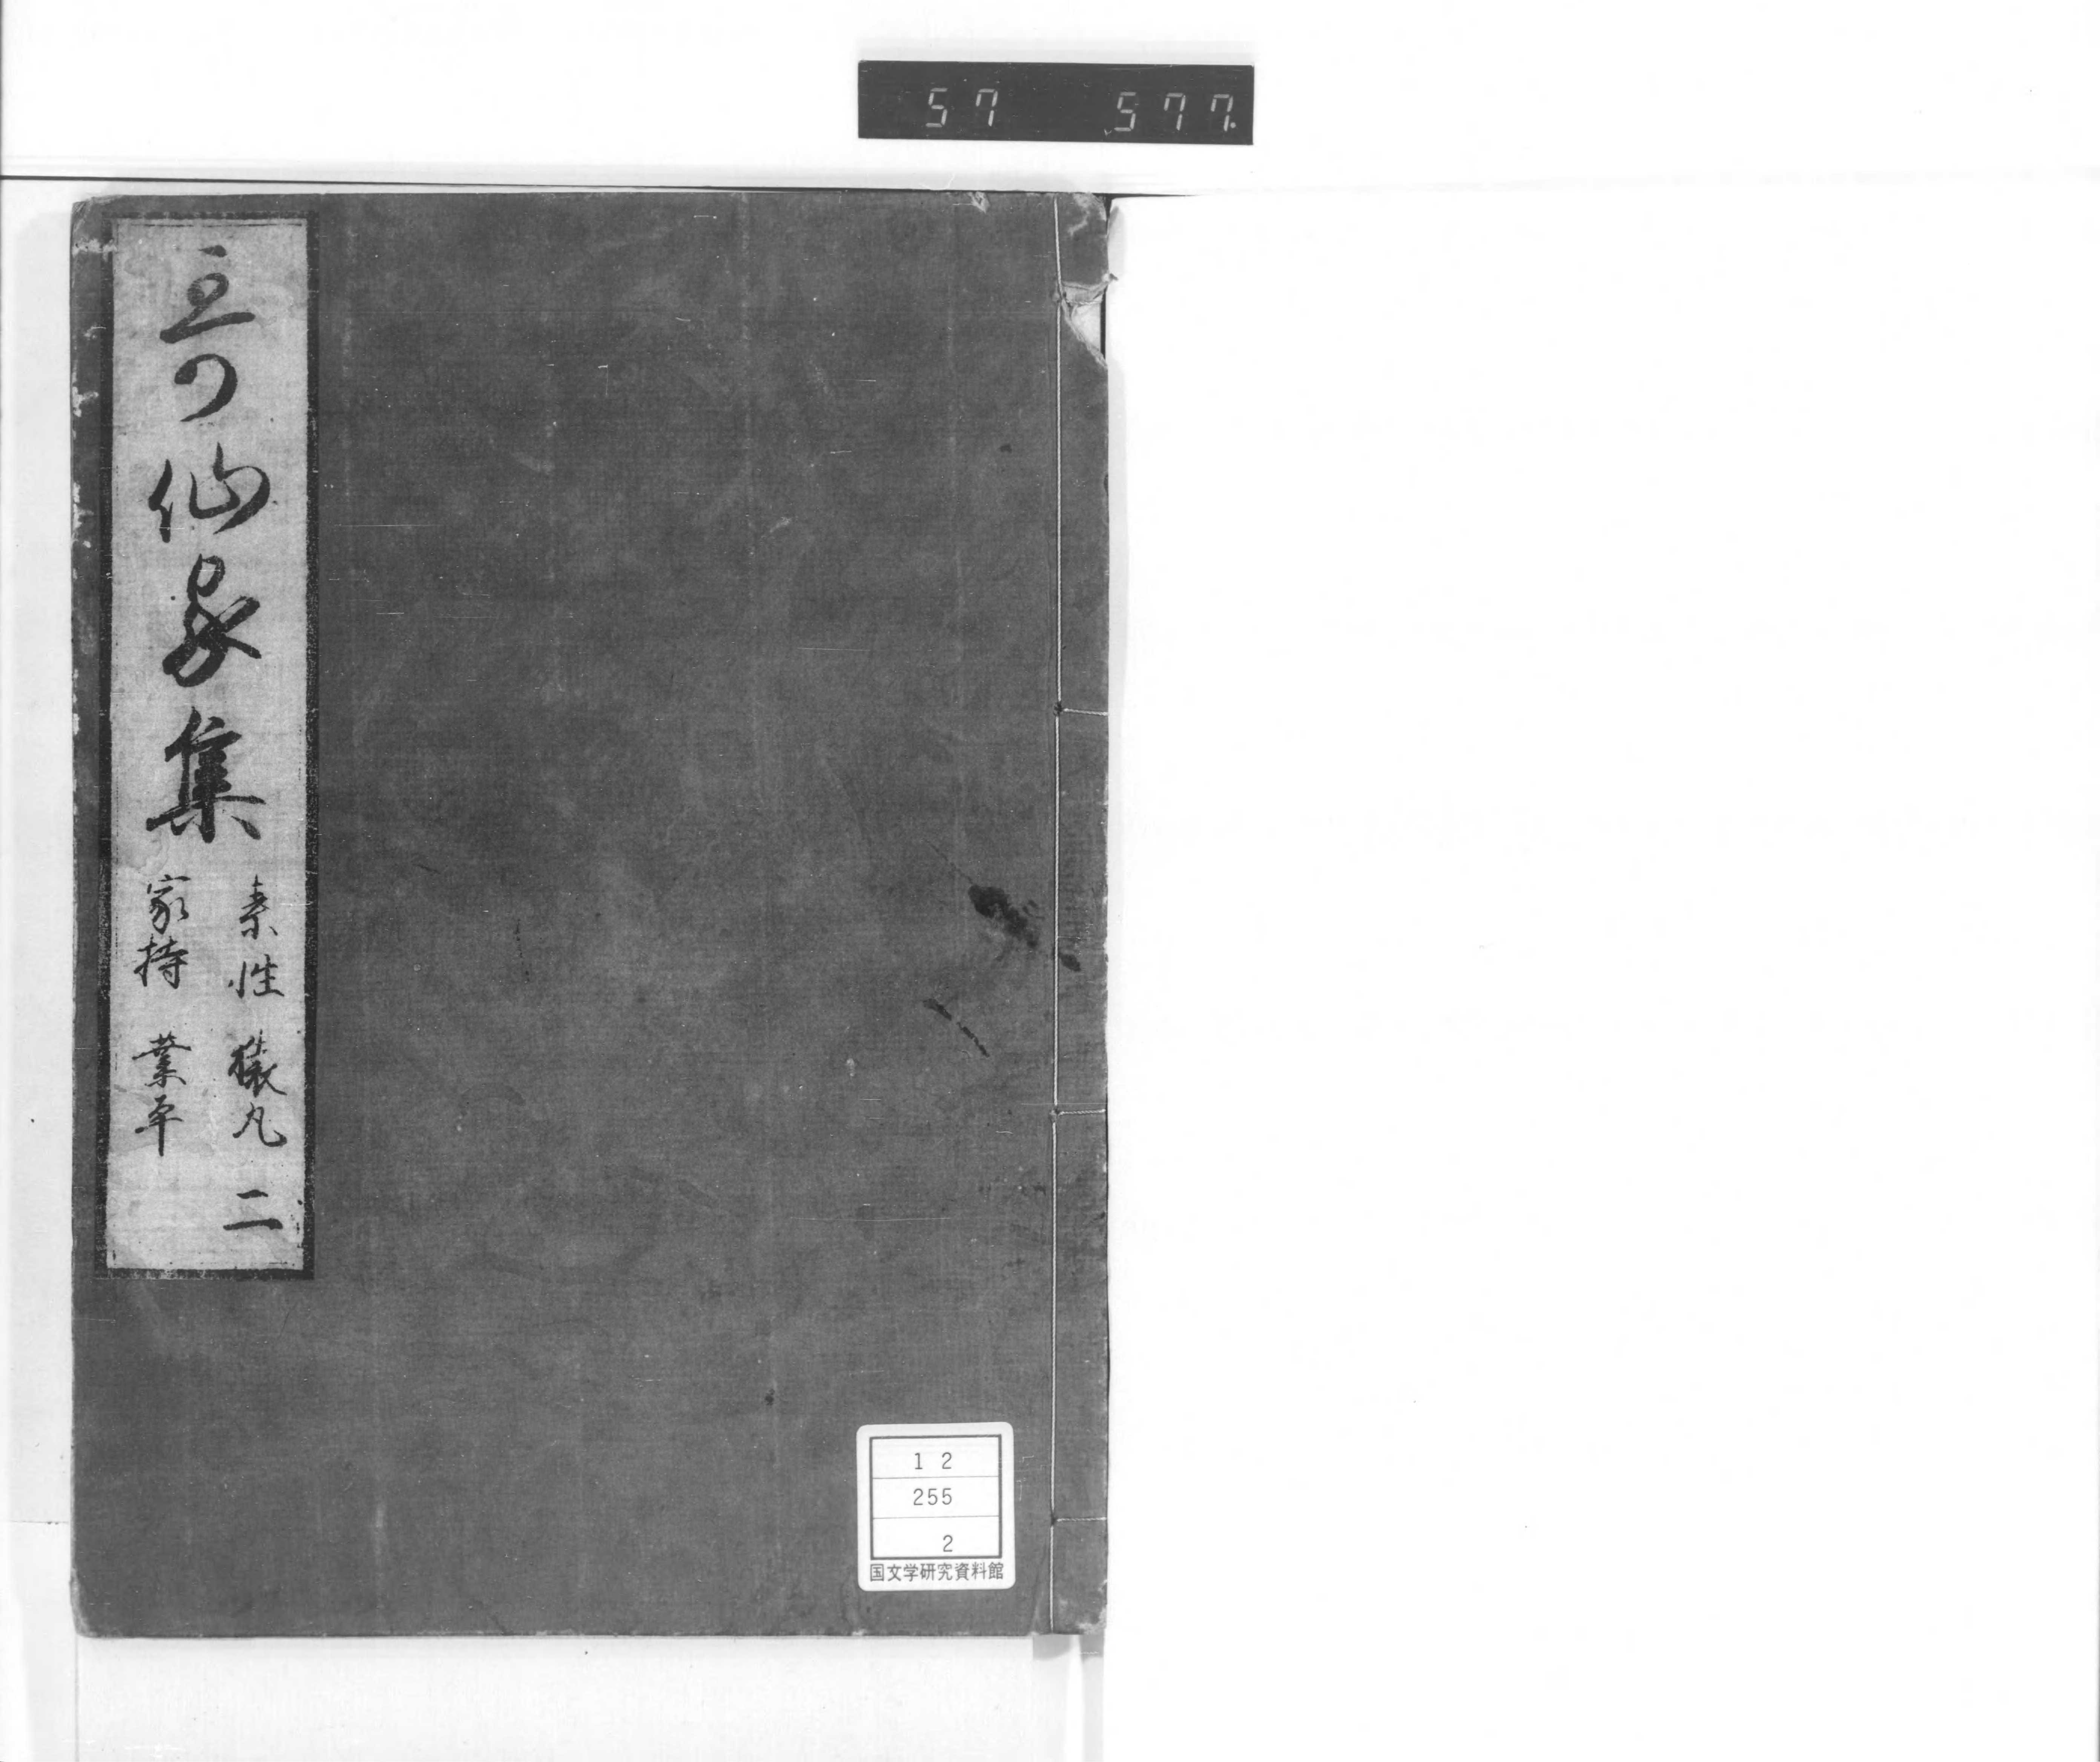 57 577.
哥仙家集
素性 猿丸 二
家持 業平
12
255
2
国文学研究資料館